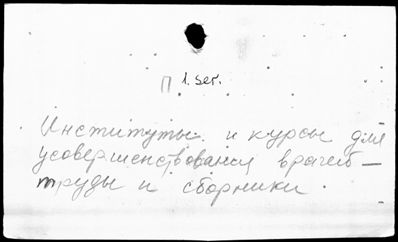 П 1. ser.
Институты и курсы для
усовершенствования врачей –
труды и сборники.